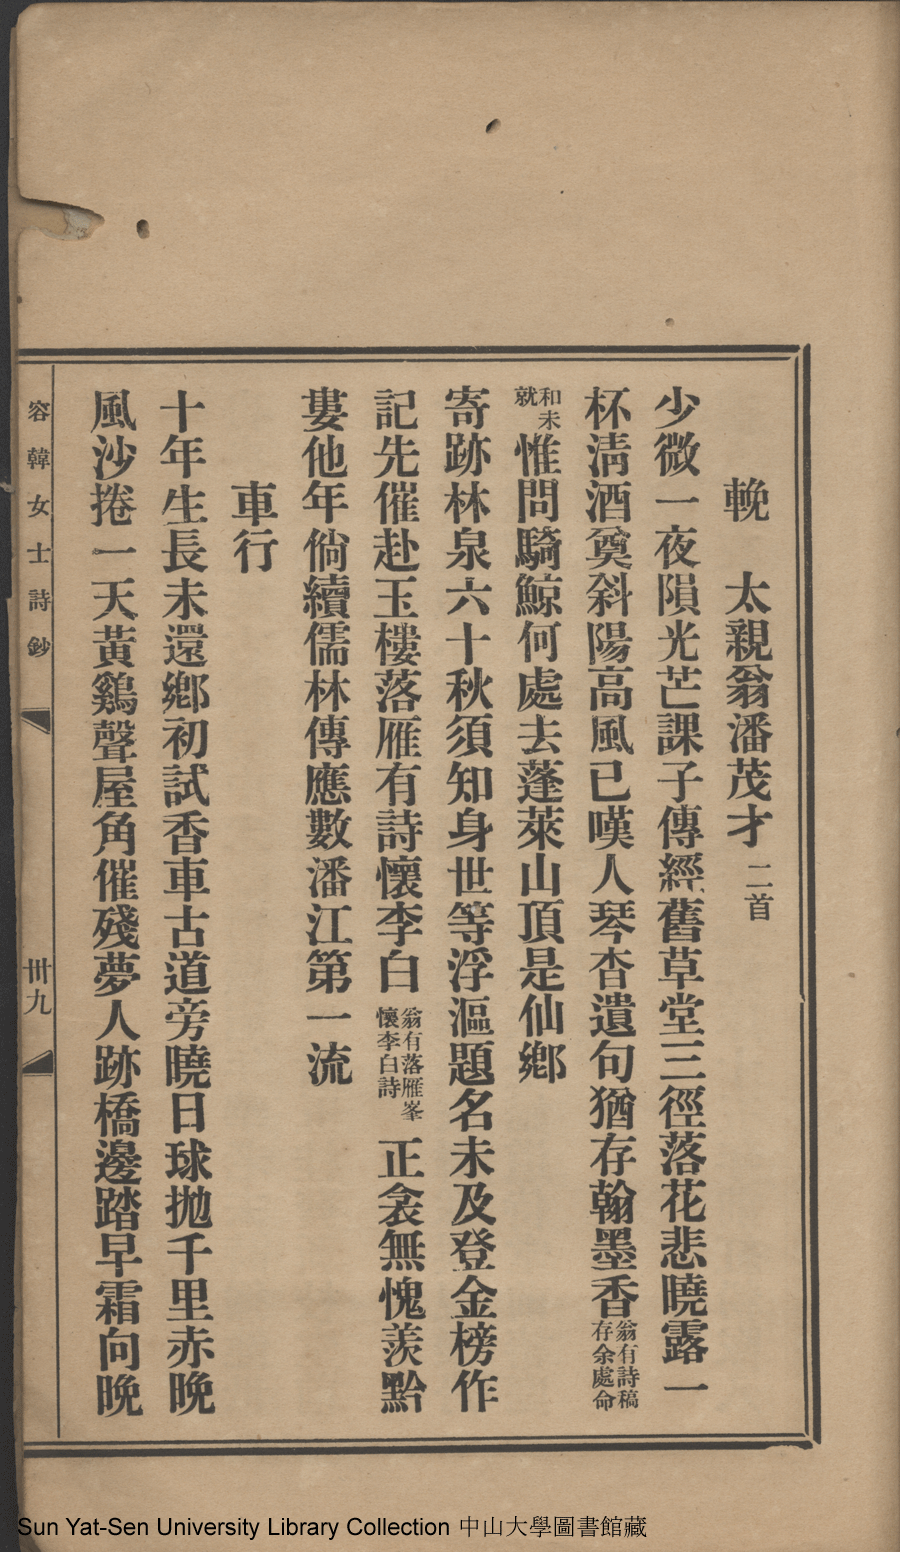 輓　太親翁潘茂才二首
少微一夜隕光芒課子傳經舊草堂三徑落花悲曉露一
杯淸酒奠斜陽高風已嘆人琴杳遺句猶存翰墨香翁有詩稿存余處命
和未就惟問騎鯨何處去蓬萊山頂是仙鄕
寄跡林泉六十秋須知身世等浮漚題名未及登金榜作
記先催赴玉樓落雁有詩懷李白翁有落雁峯懷李白詩正衾無愧羨黔
婁他年倘續儒林傳應數潘江第一流
車行
十年生長未還鄕初試香車古道旁曉日球拋千里赤晚
風沙捲一天黃鷄聲屋角催殘夢人跡橋邊踏早霜向晚
容韓女士詩鈔
卅九
Sun Yat-Sen University Library Collection 中山大學圖書館藏